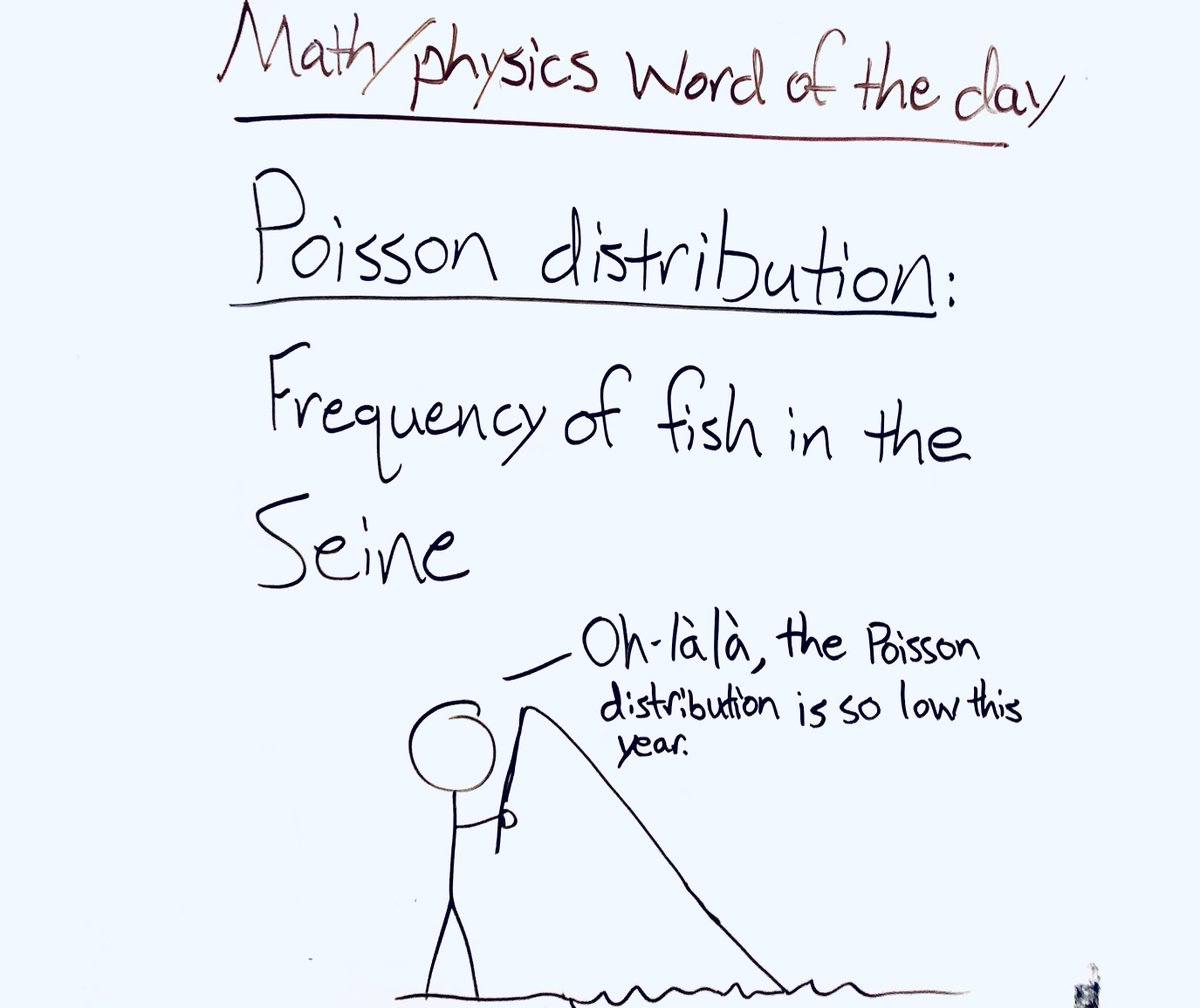 Math/physics Word of the day
Poisson distribution:
Frequency of fish in the
Seine
Oh-làlà, the Poisson
distribution is so low this
year.